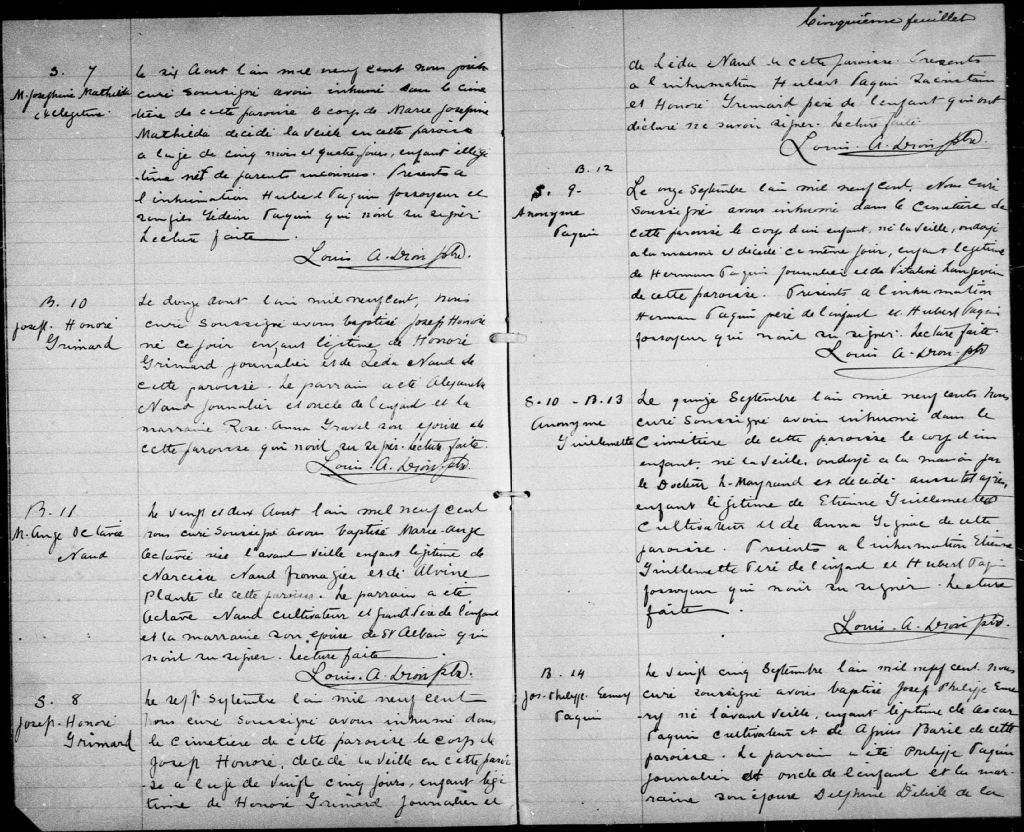 S. 7
M. Josephine Mathilda
illegitime
le six Aout l'an mil neuf cent nous pretre
curé soussigné avons inhumé dans le cime
tière de cette paroisse le corps de Marie Josephine
Mathieda décédé la veille en cette paroisse
a l'age de cinq mois et quatre jours, enfant illégi
time né de parents inconnus. Presents a
l'inhumation Hubert Paquin fossoyeur et
Paquin qui n'ont su signer
Lecture faite
Louis A. Dion ptre.
B. 10
Joseph. Honoré
Grimard
Le douze Aout l'an mil neuf cent, nous
curé soussigné avons baptisé Joseph Honoré
né ce jour enfant légitime de Honoré
Grimard journalier et de Léda Naud de
cette paroisse. Le parrain a été Alexandre
Naud journalier et oncle de l'enfant et la
marraine Rose-Anna Gravel son epouse de
cette paroisse qui n'ont su signer. Lecture faite.
Louis. A. Dion. ptre.
B. 11
M. Ange Octavie
Naud
Le vingt et deux Aout l'an mil neuf cent
nous curé soussigné avons baptisé Marie-Ange
Octavie née l'avant veille enfant légitime de
Narcisse Naud fromagier et de Alvine
Plante de cette paroisse. Le parrain a été
Octave Naud cultivateur et grand Père de l'enfant
et la marraine son épouse de St Alban qui
n'ont su signer. Lecture faite
Louis. A. Dion ptre.
S. 8
Joseph. Honoré
Grimard
Le sept Septembre l'an mil neuf cent
nous curé soussigné avons inhumé dans
le cimetière de cette paroisse le corps de
Joseph Honoré, décédé la veille en cette parois
se a l'age de vingt cinq jours, enfant légi
time de Honoré Grimard journalier et
Cinquième feuillet
de Léda Naud de cette paroisse. Presents
a l'inhumation Hubert Paquin Sacristain
et Honoré Grimard père de l'enfant qui ont
déclaré ne savoir signer. Lecture faite
Louis. A. Dion ptre.
B. 12
S. 9-
Anonyme
Paquin
Le onze Septembre l'an mil neuf cent, Nous curé
soussigné avons inhumé dans le cimetière de
cette paroisse le corps d'un enfant, né la veille, ondoyé
a la maison et décédé ce même jour, enfant légitime
de Herman Paquin journalier et de Vitaline Langevin
de cette paroisse. Presents a l'inhumation
Herman Paquin père de l'enfant et Hubert Paquin
fossoyeur qui n'ont su signer. Lecture faite.
Louis A. Dion ptre
S. 10 - B. 13
Anonyme
Guillemette
Le quinze Septembre l'an mil neuf cents nous
curé soussigné avons inhumé dans le
Cimetière de cette paroisse le corps d'un
enfant, né la veille, ondoyé a la maison par
le Docteur L. Mayrand et décédé aussitot après,
enfant légitime de Etienne Guillemette
Cultivateur et de Anna Gignac de cette
paroisse. Presents a l'inhumation Etienne
Guillemette Père de l'enfant et Hubert Paquin
fossoyeur qui n'ont su signer. Lecture
faite.
Louis. A. Dion ptre.
B. 14
Jos. Philippe. Emery
Paquin
Le vingt cinq Septembre l'an mil neuf cent. nous
curé soussigné avons baptisé Josef Philippe Eme
ry né l'avant veille, enfant légitime de Oscar
Paquin cultivateur et de Agnes Baril de cette
paroisse. Le parrain a été Philippe Paquin
journalier et oncle de l'enfant et la mar-
raine son épouse Delphine Delisle de la